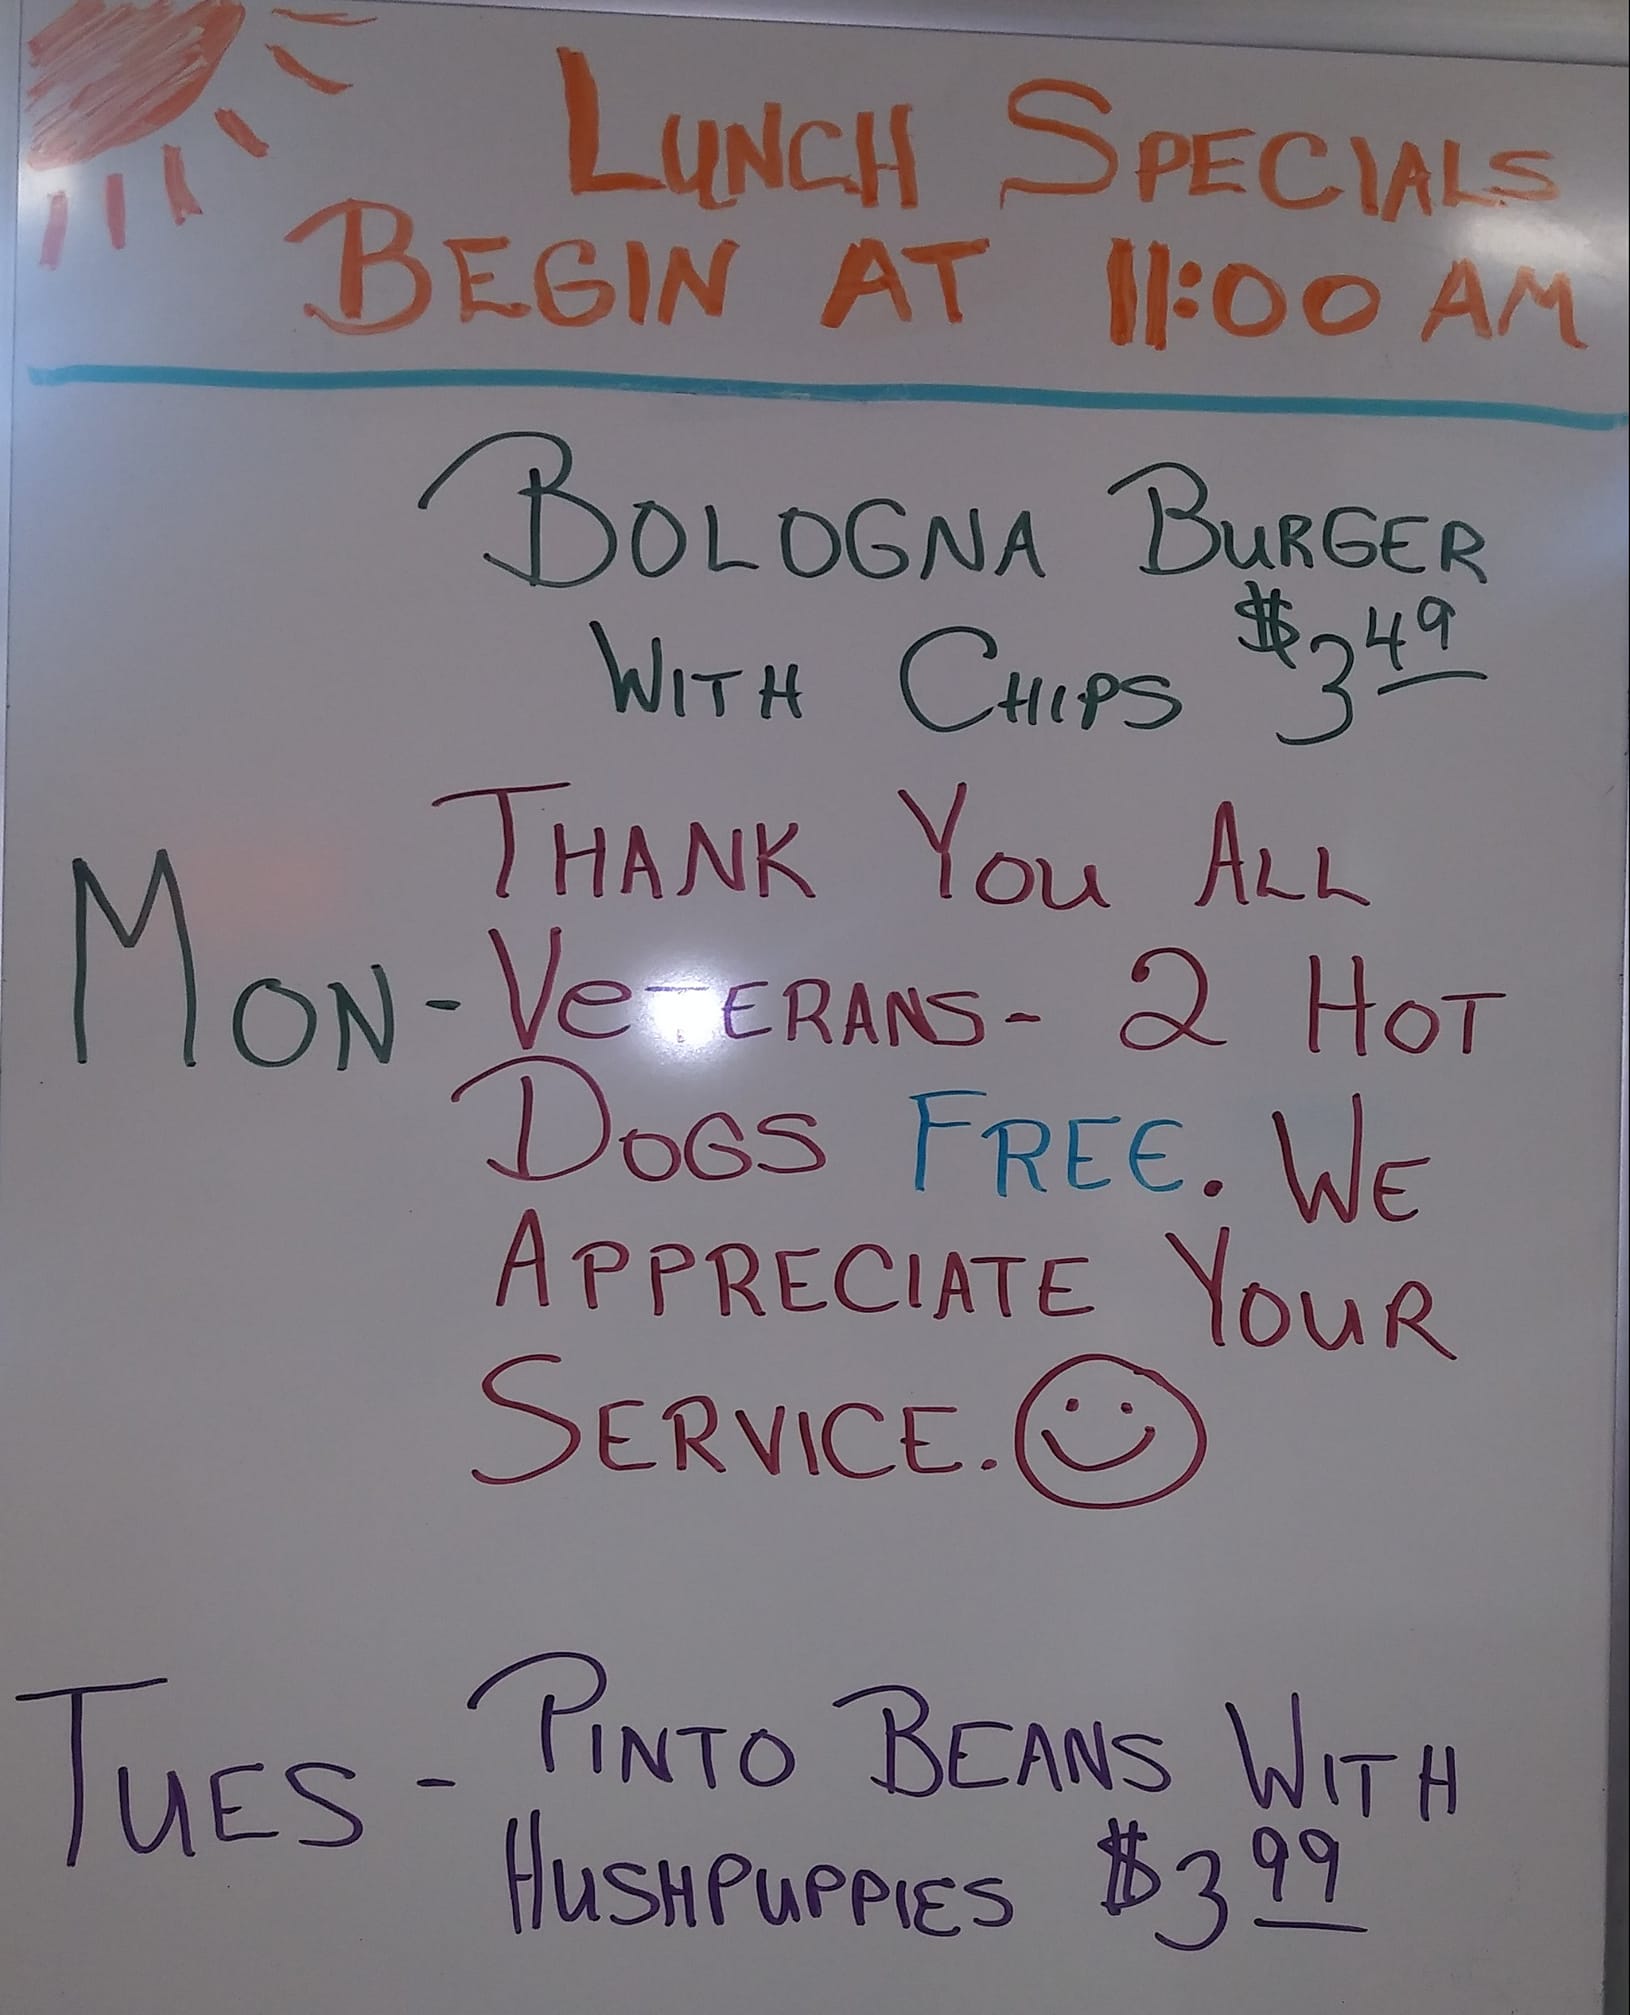 LUNCH SPECIALS
BEGIN AT 11:00 AM
BOLOGNA BURGER
WITH CHIPS $3.49
THANK YOU ALL
MON - VETERANS - 2 HOT
DOGS FREE. WE
APPRECIATE YOUR
SERVICE.
TUES - PINTO BEANS WITH
HUSHPUPPIES $3.99